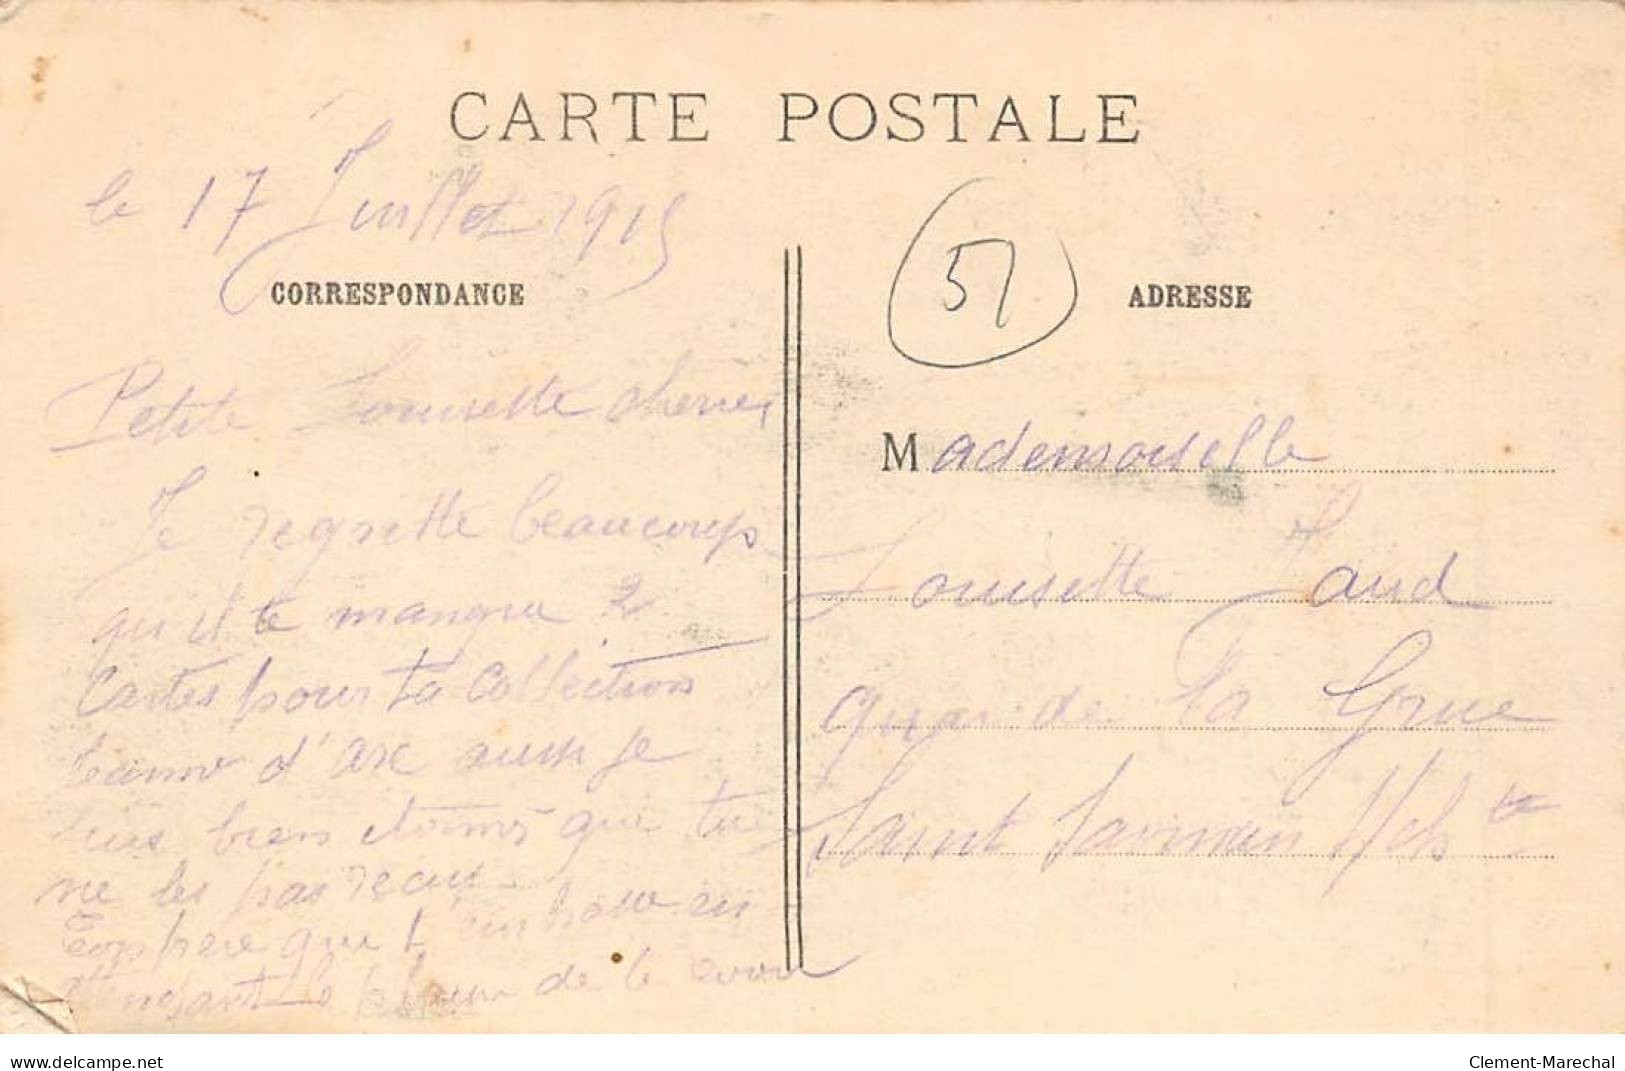 CARTE POSTALE
le 17 Juillet 1915
CORRESPONDANCE
Petite Louisette cherie,
Je regrette beaucoup
qu'il te manque 2
Cartes pour ta collection
d'arc aussi je
suis bien que tu
ne les pas recus
qui t'embrasse en
de te
51
ADRESSE
Mademoiselle
Louisette
quai de la Grue
Saint
delcampe.net
Clement-Marechal